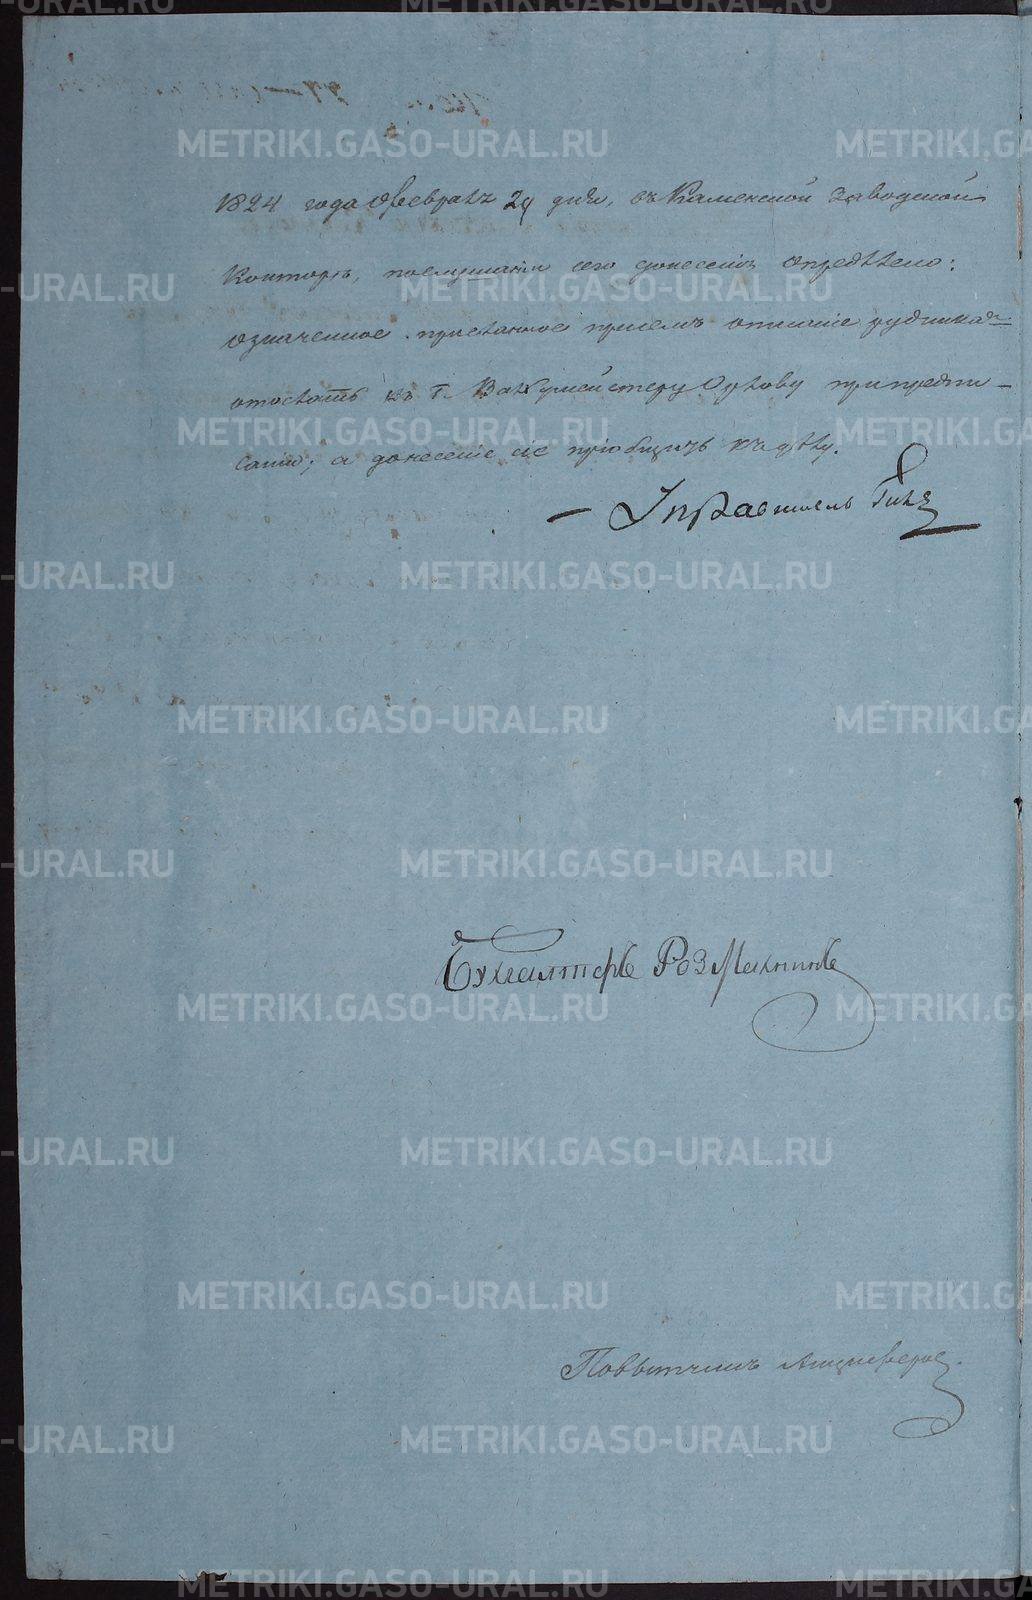 1824 года Февраля 29 дня, въ Каменской Заводской
Конторѣ, послушанiи сего донесенiя опредѣлено:
означенное присланное при семъ описанiе рудника
отослать къ Г. Вахмейстеру Орлову при предпи-
санiи; а донесенiе сiе прiобщить къ дѣлу.
Управитель
Бухгалтеръ Розмахнинъ
Повытчикъ
METRIKI.GASO-URAL.RU